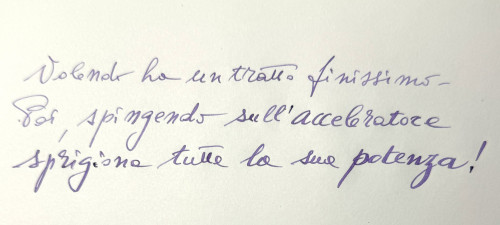 Volendo ha un tratto finissimo-
Poi, spingendo sull'acceleratore
sprigiona tutta la sua potenza!